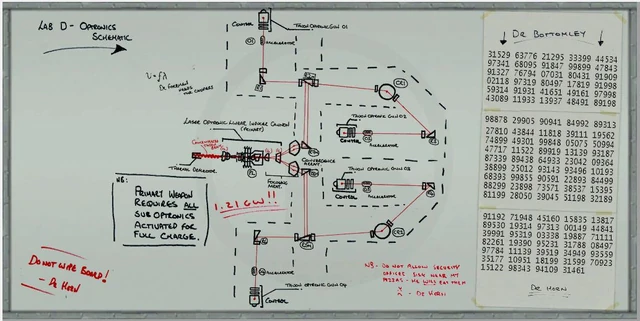 LAB D - OPTRONICS
SCHEMATIC
CONTROL
TAUON OPTRONIC GUN 01
ACCELERATOR
LASER OPTRONIC LINEAR IMPULSE CANNON
(PRIMARY)
THERMAL GENERATOR
CONVERGENCE AGENT
FOCUSING AGENT
1.21 GW!!
TAUON OPTRONIC GUN 02
CONTROL
ACCELERATOR
TAUON OPTRONIC GUN 03
CONTROL
ACCELERATOR
ACCELERATOR
TAUON OPTRONIC GUN 04
CONTROL
NB:
PRIMARY WEAPON
REQUIRES ALL
SUB OPTRONICS
ACTIVATED FOR
FULL CHARGE.
DO NOT WIPE BOARD!
- DR HORN
NB - DO NOT ALLOW SECURITY
PIZZAS - HE WILL EAT THEM
- DR HORN
DR BOTTOMLEY
31529 63776 21295 33399 44534
97341 68095 91847 99899 47843
91327 76794 07031 80431 91909
02118 97319 80497 17819 91998
59314 91931 41651 49161 97998
43089 11933 13937 48491 89198
98878 29905 90941 84992 89313
27810 43844 11818 39111 19562
74899 49301 99848 05075 50994
47717 11522 89919 13139 93187
87339 89438 64933 23042 09364
38899 25012 93143 93496 10193
68393 99815 90591 22893 84490
88299 23898 73571 38537 15395
81199 28050 39045 51198 32189
91192 71948 45160 15835 13817
89530 19314 97313 00149 44841
39991 95319 03338 19887 71111
82261 19390 95231 31788 08497
97784 11139 39519 34949 93559
35177 10951 18199 31599 70923
15122 98343 94109 31461
DR HORN